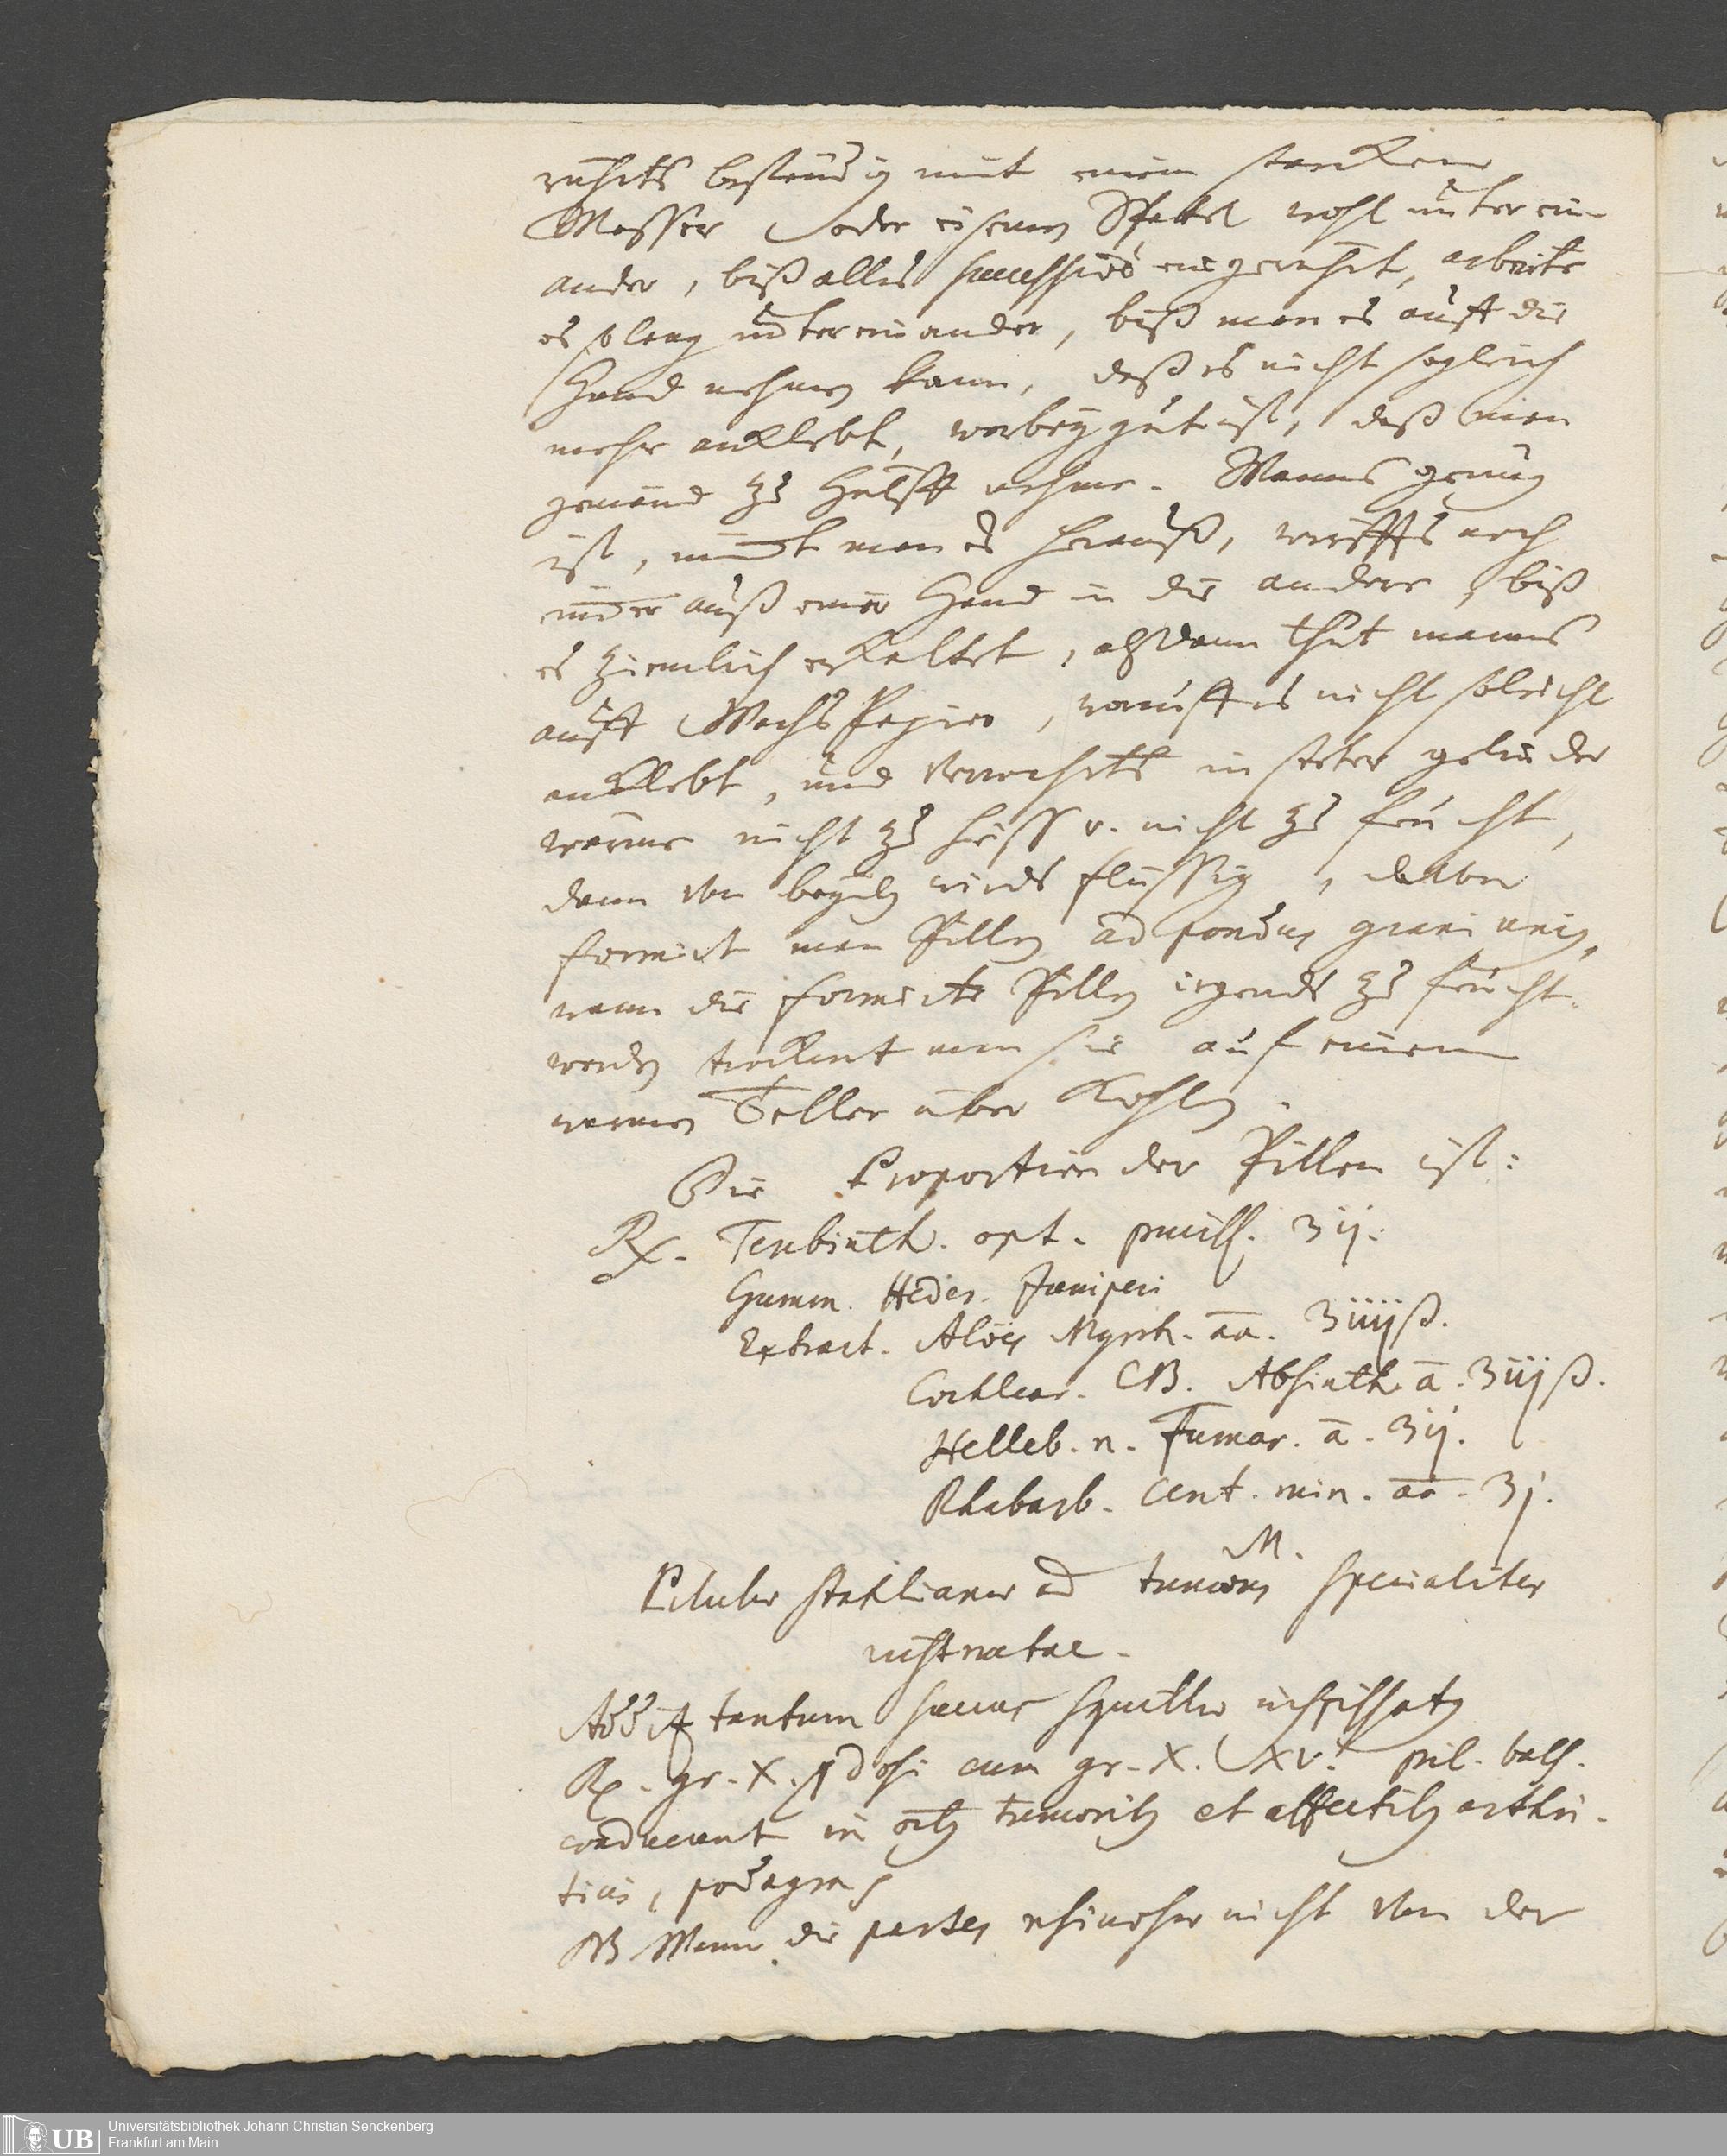 rührts beständig mit einem starcken
Messer oder eisernen Spatel wohl unter ein-
ander, biß alles successivè eingerührt, arbeite
es so lang untereinander, biß man es auff die
Hand nehmen kann, daß es nicht sogleich
mehr anklebt, worbey gut ist, daß man
jemand zu Hülff nehme. Wanns genug
ist, nimbt man es herauß, wirffts noch
immer auß einer Hand in die andere, biß
es ziemlich erkaltet, alßdann thut manns
auff Wachs Papier, worauff es nicht so leicht
anklebt, und verwahrts in steter gelinder
wärme nicht zu heiß u. nicht zu feücht,
dann von beyden wirds flüssig, darvon
formirt man Pillen ad pondus grani unius,
wann die formirte Pillen irgends zu feücht
werden trocknet man sie auf einem
warmen Teller über Kohlen.
Die Proportion der Pillen ist:
Rx. Terebinth. opt. puriss. ʒij.
Gumm. Heder. Juniperi
Extract. Aloës Myrrh. aa. ʒiiijß.
Cochlear. CB. Absinth. a. ʒiijß.
Helleb. n. Fumar. a. ʒij.
Rhabarb. Cent. min. aa. ʒj.
M.
Pilulae Stahlianae ad tumores specialiter
Addit tantum succus squillae inspissatus
Rx. gr. X. p dosi cum gr. X. XV. pil. bals.
conducunt in tumoribus et affectibus arthri-
ticis, podagra
NB Wann die partes nicht von der